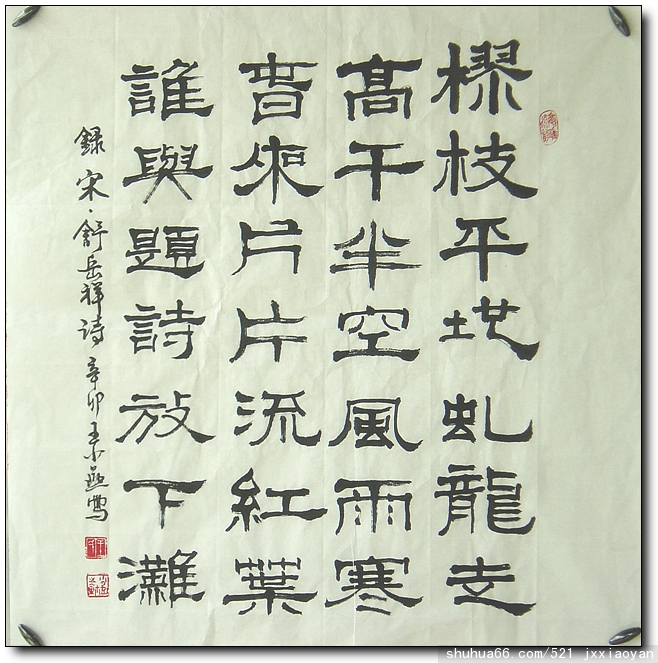 樛枝平地虬龍走
高干半空風雨寒
春來片片流紅葉
誰與題詩放下灘
録宋·舒岳祥诗 辛卯王小燕寫
shuhua66.com/521 jxxiaoyan